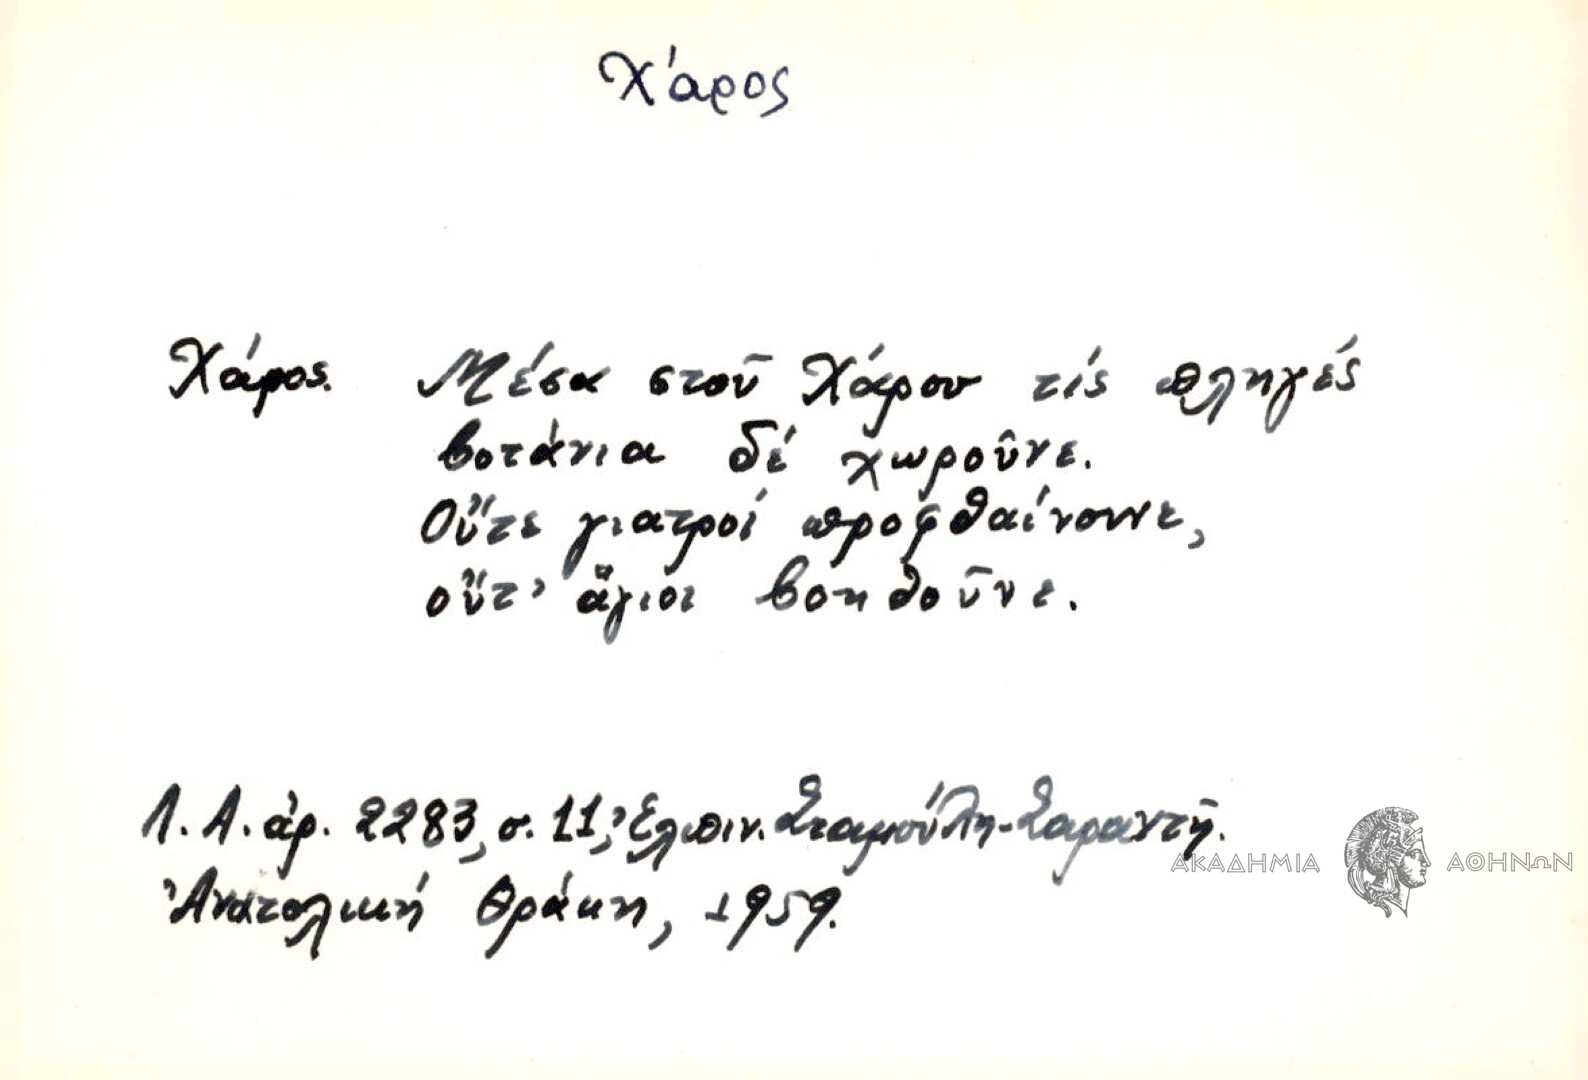 Χάρος
Χάρος. Μέσα στοῦ Χάρου τίς πληγές
βοτάνια δέ χωροῦνε.
Οὔτε γιατροί προφθαίνουνε,
οὔτ' ἅγιοι βοηθοῦνε.
Λ. Α. ἀρ. 2283, σ. 11, Ἐλπιν. Σταμούλη-Σαραντῆ.
Ἀνατολική Θράκη, 1959.
ΑΚΑΔΗΜΙΑ ΑΘΗΝΩΝ